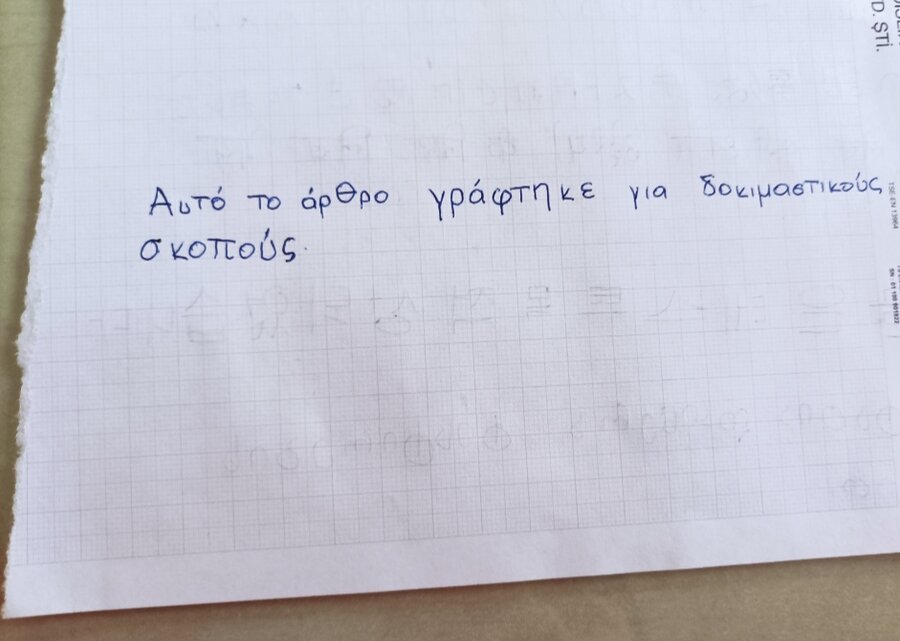 Αυτό το άρθρο γράφτηκε για δοκιμαστικούς
σκοπούς.
D. ŞTİ.
TSE EN 13964